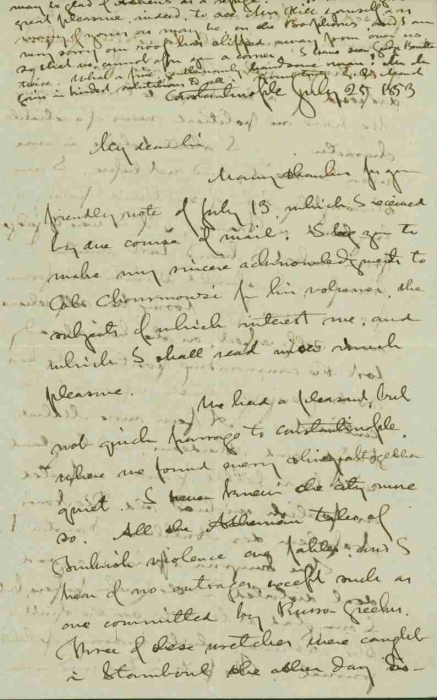 may be glad of Athens as a refuge.
great pleasure, indeed, to see Mrs Hill & yourself or
of you on may be on the Bosphorus and I am
very sorry our roof has slipped away from over us
so that we cannot offer you a corner. I have seen
twice. What a fine, gentlemanly, handsome man!
joins in kindest salutations to all
Constantinople July 25 1853
My dear Sir
Many thanks for your
friendly note of July 13, which I received
by due course of mail. I beg you to
make my sincere acknowledgments to
for his volumes, the
subjects of which interest me, and
which I shall read with much
pleasure.
We had a pleasant, but
not quick, passage to Constantinople
where we found every thing altogether
quiet. I never knew the city more
so. All the Athenian tales of
Turkish violence are fables and I
hear of no outrages except such as
are committed by Russo Greeks.
Three of these wretches were caught
in Stamboul the other day